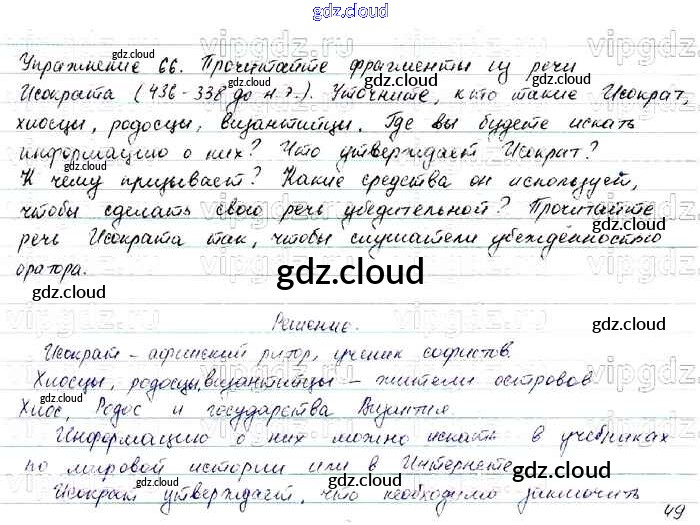 gdz.cloud
Упражнение 66. Прочитайте фрагменты из речи
Исократа (436-338 до н.э.). Уточните, кто такие Исократ,
хиосцы, родосцы, византийцы. Где вы будете искать
информацию о них? Что утверждает Исократ?
К чему призывает? Какие средства он использует,
чтобы сделать свою речь убедительной? Прочитайте
речь Исократа так, чтобы слушатели убеждённостью
оратора.
gdz.cloud
Решение.
Исократ - афинский ритор, ученик софистов.
Хиосцы, родосцы, византийцы - жители островов
Хиос, Родос и государства Византия.
Информацию о них можно искать в учебниках
по мировой истории или в Интернете.
Исократ утверждает, что необходимо заключить
49